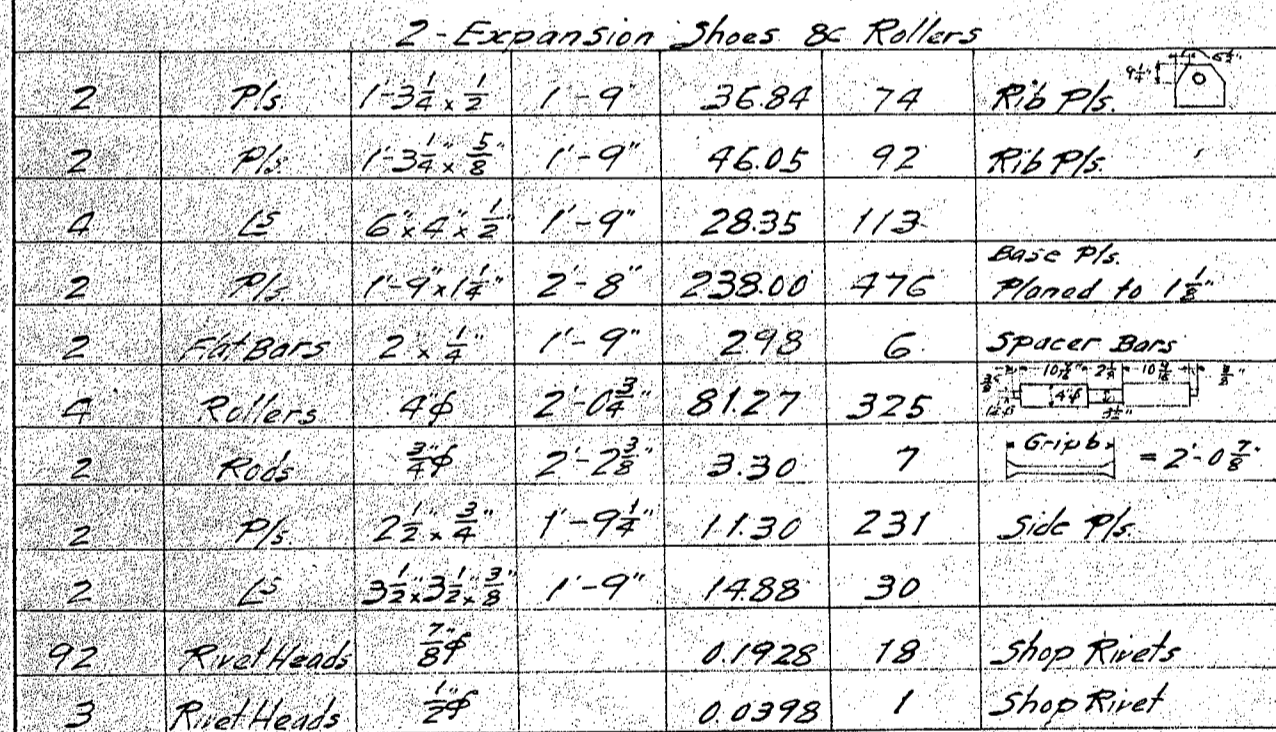 2-Expansion Shoes & Rollers
2 Pls. 1'-3 1/4 x 1/2 1'-9" 36.84 74 Rib Pls. 9 1/4"
2 Pls. 1'-3 1/4" x 5/8" 1'-9" 46.05 92 Rib Pls.
4 Ls 6" x 4" x 1/2" 1'-9" 28.35 113
2 Pls. 1'-9" x 1 1/4" 2'-8" 238.00 476 Base Pls. Planed to 1 1/8"
2 Flat Bars 2" x 1/4" 1'-9" 298 6 Spacer Bars
4 Rollers 4φ 2'-0 3/4" 81.27 325
2 Rods 3/4"φ 2'-2 3/8" 3.30 7 Grip b = 2'-0 7/8"
2 Pls. 2 1/2 x 3/4" 1'-9 1/4" 11.30 231 Side Pls.
2 Ls 3 1/2" x 3 1/2" x 3/8" 1'-9" 14.88 30
92 Rivet Heads 7/8"φ 0.1928 18 Shop Rivets
3 Rivet Heads 1/2"φ 0.0398 1 Shop Rivet